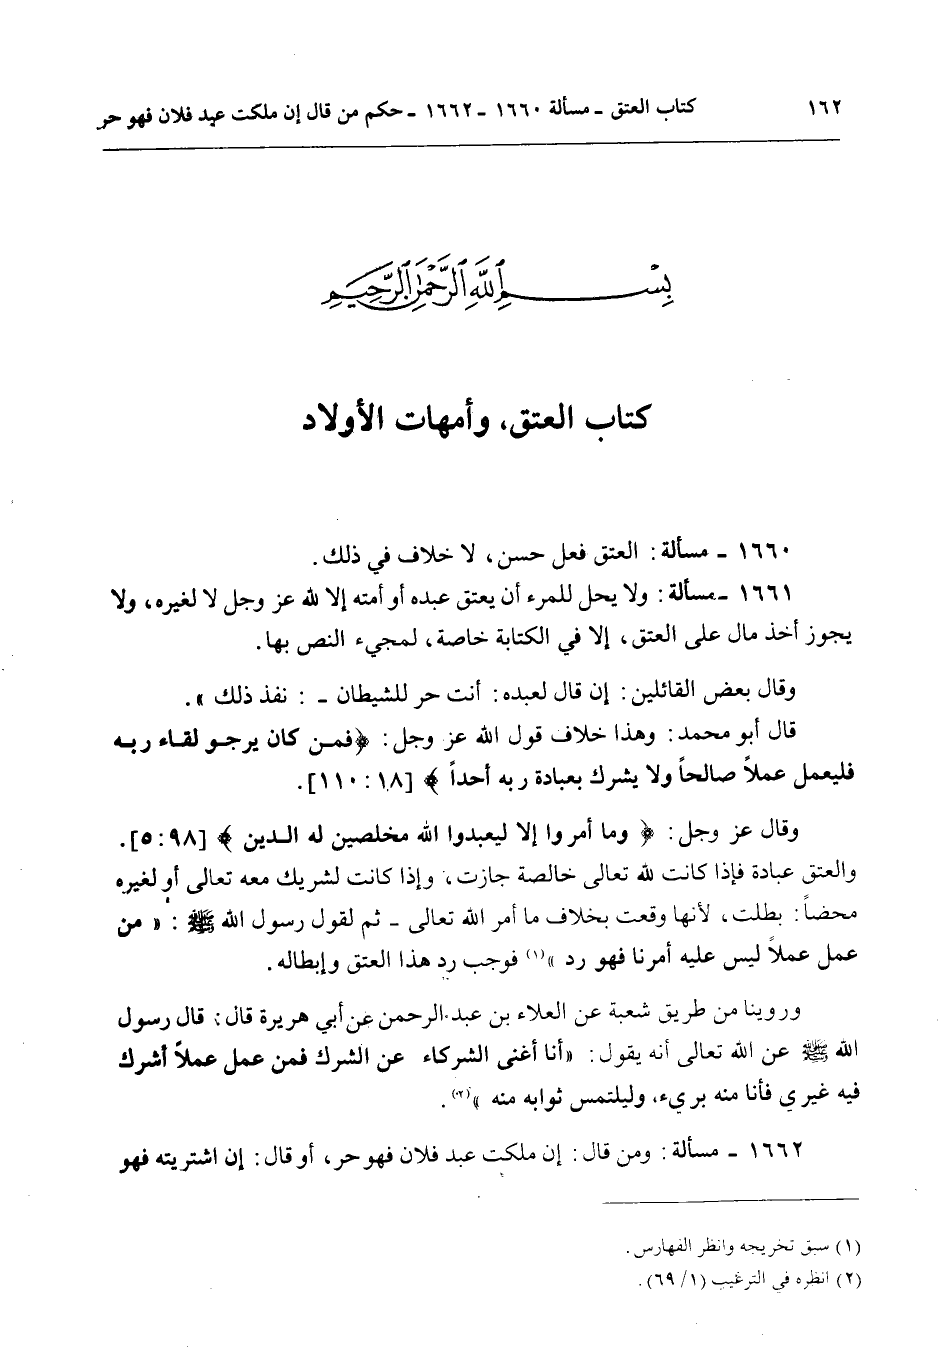 ١٦٢ كتاب العتق ـ مسألة ١٦٦٠ ـ ١٦٦٢ ـ حكم من قال إن ملكت عبد فلان فهو حر
بسم الله الرحمن الرحيم
كتاب العتق، وأمهات الأولاد
١٦٦٠ ـ مسألة: العتق فعل حسن، لا خلاف في ذلك.
١٦٦١ ـ مسألة: ولا يحل للمرء أن يعتق عبده أو أمته إلا لله عز وجل لا لغيره، ولا
يجوز أخذ مال على العتق، إلا في الكتابة خاصة، لمجيء النص بها.
وقال بعض القائلين: إن قال لعبده: أنت حر للشيطان ـ : نفذ ذلك ».
قال أبو محمد: وهذا خلاف قول الله عز وجل: ﴿فمن كان يرجو لقاء ربه
فليعمل عملاً صالحاً ولا يشرك بعبادة ربه أحداً ﴾ [١٨: ١١٠].
وقال عز وجل: ﴿ وما أمروا إلا ليعبدوا الله مخلصين له الدين ﴾ [٩٨: ٥].
والعتق عبادة فإذا كانت لله تعالى خالصة جازت، وإذا كانت لشريك معه تعالى أو لغيره
محضاً: بطلت، لأنها وقعت بخلاف ما أمر الله تعالى ـ ثم لقول رسول الله ﷺ : « من
عمل عملاً ليس عليه أمرنا فهو رد »(١) فوجب رد هذا العتق وإبطاله.
وروينا من طريق شعبة عن العلاء بن عبد الرحمن عن أبي هريرة قال: قال رسول
الله ﷺ عن الله تعالى أنه يقول: «أنا أغنى الشركاء عن الشرك فمن عمل عملاً أشرك
فيه غيري فأنا منه بريء، وليلتمس ثوابه منه »(٢).
١٦٦٢ ـ مسألة: ومن قال: إن ملكت عبد فلان فهو حر، أو قال: إن اشتريته فهو
(١) سبق تخريجه وانظر الفهارس.
(٢) انظره في الترغيب (١/ ٦٩).